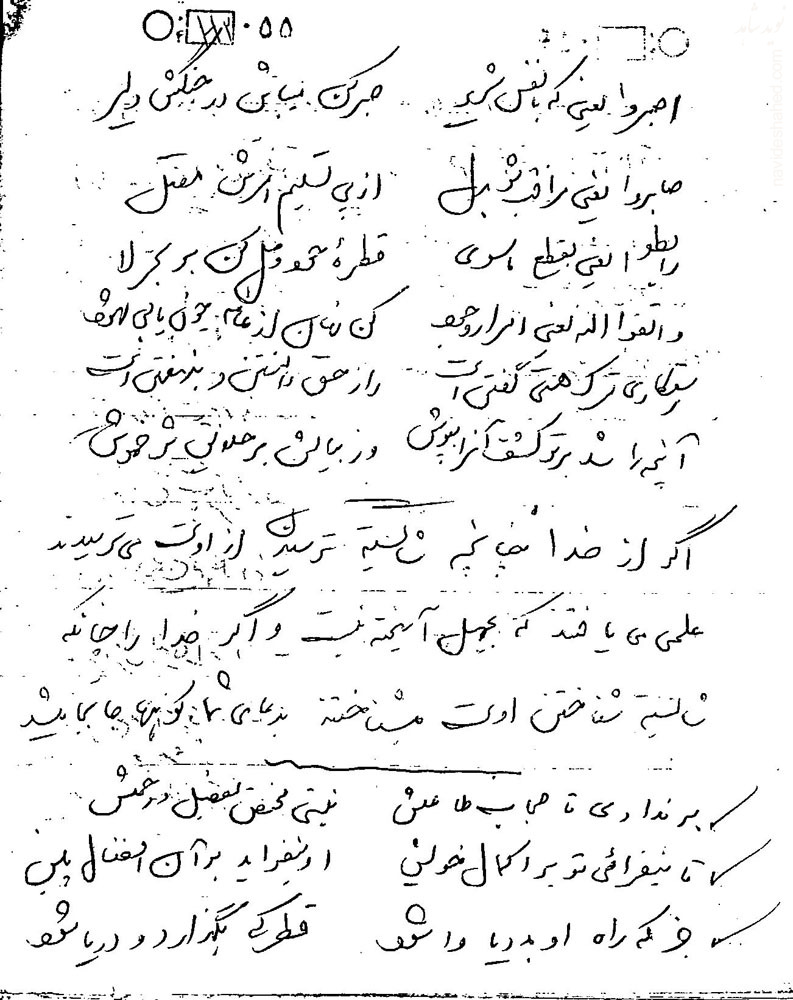 ۰۵۵
اصبروا یعنی که با نفس شریر صبر کن میباش در جنگش دلیر
صابروا یعنی مراقب شو بدل از پی تسلیم امرش
رابطوا یعنی بقطع ماسوی قطره شو وصل کن بر بحر لا
واتقوا الله یعنی اسرار وجود کن نهان از عامه چون یابی شهود
رستگاری ترک هستی گفتن است راز حق دانستن و بنهفتن است
آنچه را شد بر تو کشف آنرا بپوش وز بیانش بر خلایق شو خموش
اگر از خدا چنانچه شایسته ترسیدن از اوست می ترسیدند
علمی می یافتند که بجهل آمیخته نیست و اگر خدا را چنانکه
شایسته شناختن اوست میشناختند بدعای شما کوهها جابجا میشد
بر نداری تا حجاب طاعتش نیستی مخفی بفضل و رحمتش
تا نیفزائی تو بر اکمال خویش او نیفزاید بر آن افضال
جز که راه او بدریا وا شود قطرگی بگذارد و دریا شود
navideshahed.com